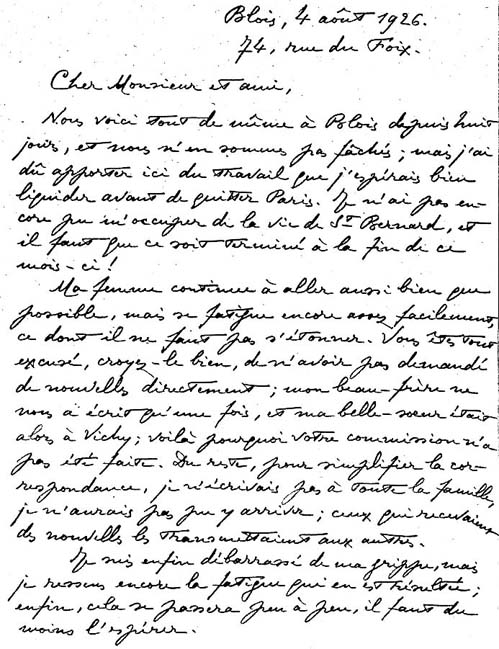 Blois, 4 août 1926.
74, rue du Foix.
Cher Monsieur et ami,
Nous voici tout de même à Blois depuis huit
jours, et nous n'en sommes pas fâchés ; mais j'ai
dû apporter ici du travail que j'espérais bien
liquider avant de quitter Paris. Je n'ai pas en-
core pu m'occuper de la vie de St Bernard, et
il faut que ce soit terminé à la fin de ce
mois-ci !
Ma femme continue à aller aussi bien que
possible, mais se fatigue encore assez facilement,
ce dont il ne faut pas s'étonner. Vous êtes tout
excusé, croyez-le bien, de n'avoir pas demandé
de nouvelles directement ; mon beau-frère ne
nous a écrit qu'une fois, et ma belle-sœur était
alors à Vichy ; voilà pourquoi votre commission n'a
pas été faite. Du reste, pour simplifier la cor-
respondance, je n'écrivais pas à toute la famille,
je n'aurais pas pu y arriver ; ceux qui recevaient
des nouvelles les transmettaient aux autres.
Je suis enfin débarrassé de ma grippe, mais
je ressens encore la fatigue qui en est résultée ;
enfin, cela se passera peu à peu, il faut du
moins l'espérer.